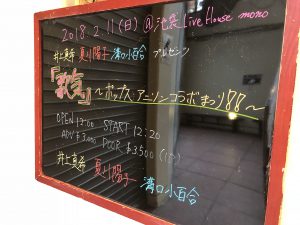 2018.2.11(日)@池袋Live House mono
井上真希 夏川陽子 溝口小百合 プレゼンツ
～ポップス、アニソンコラボまつり
OPEN 12:00 START 12:20
ADV ¥3,000 DOOR ¥3,500
夏川陽子 溝口小百合